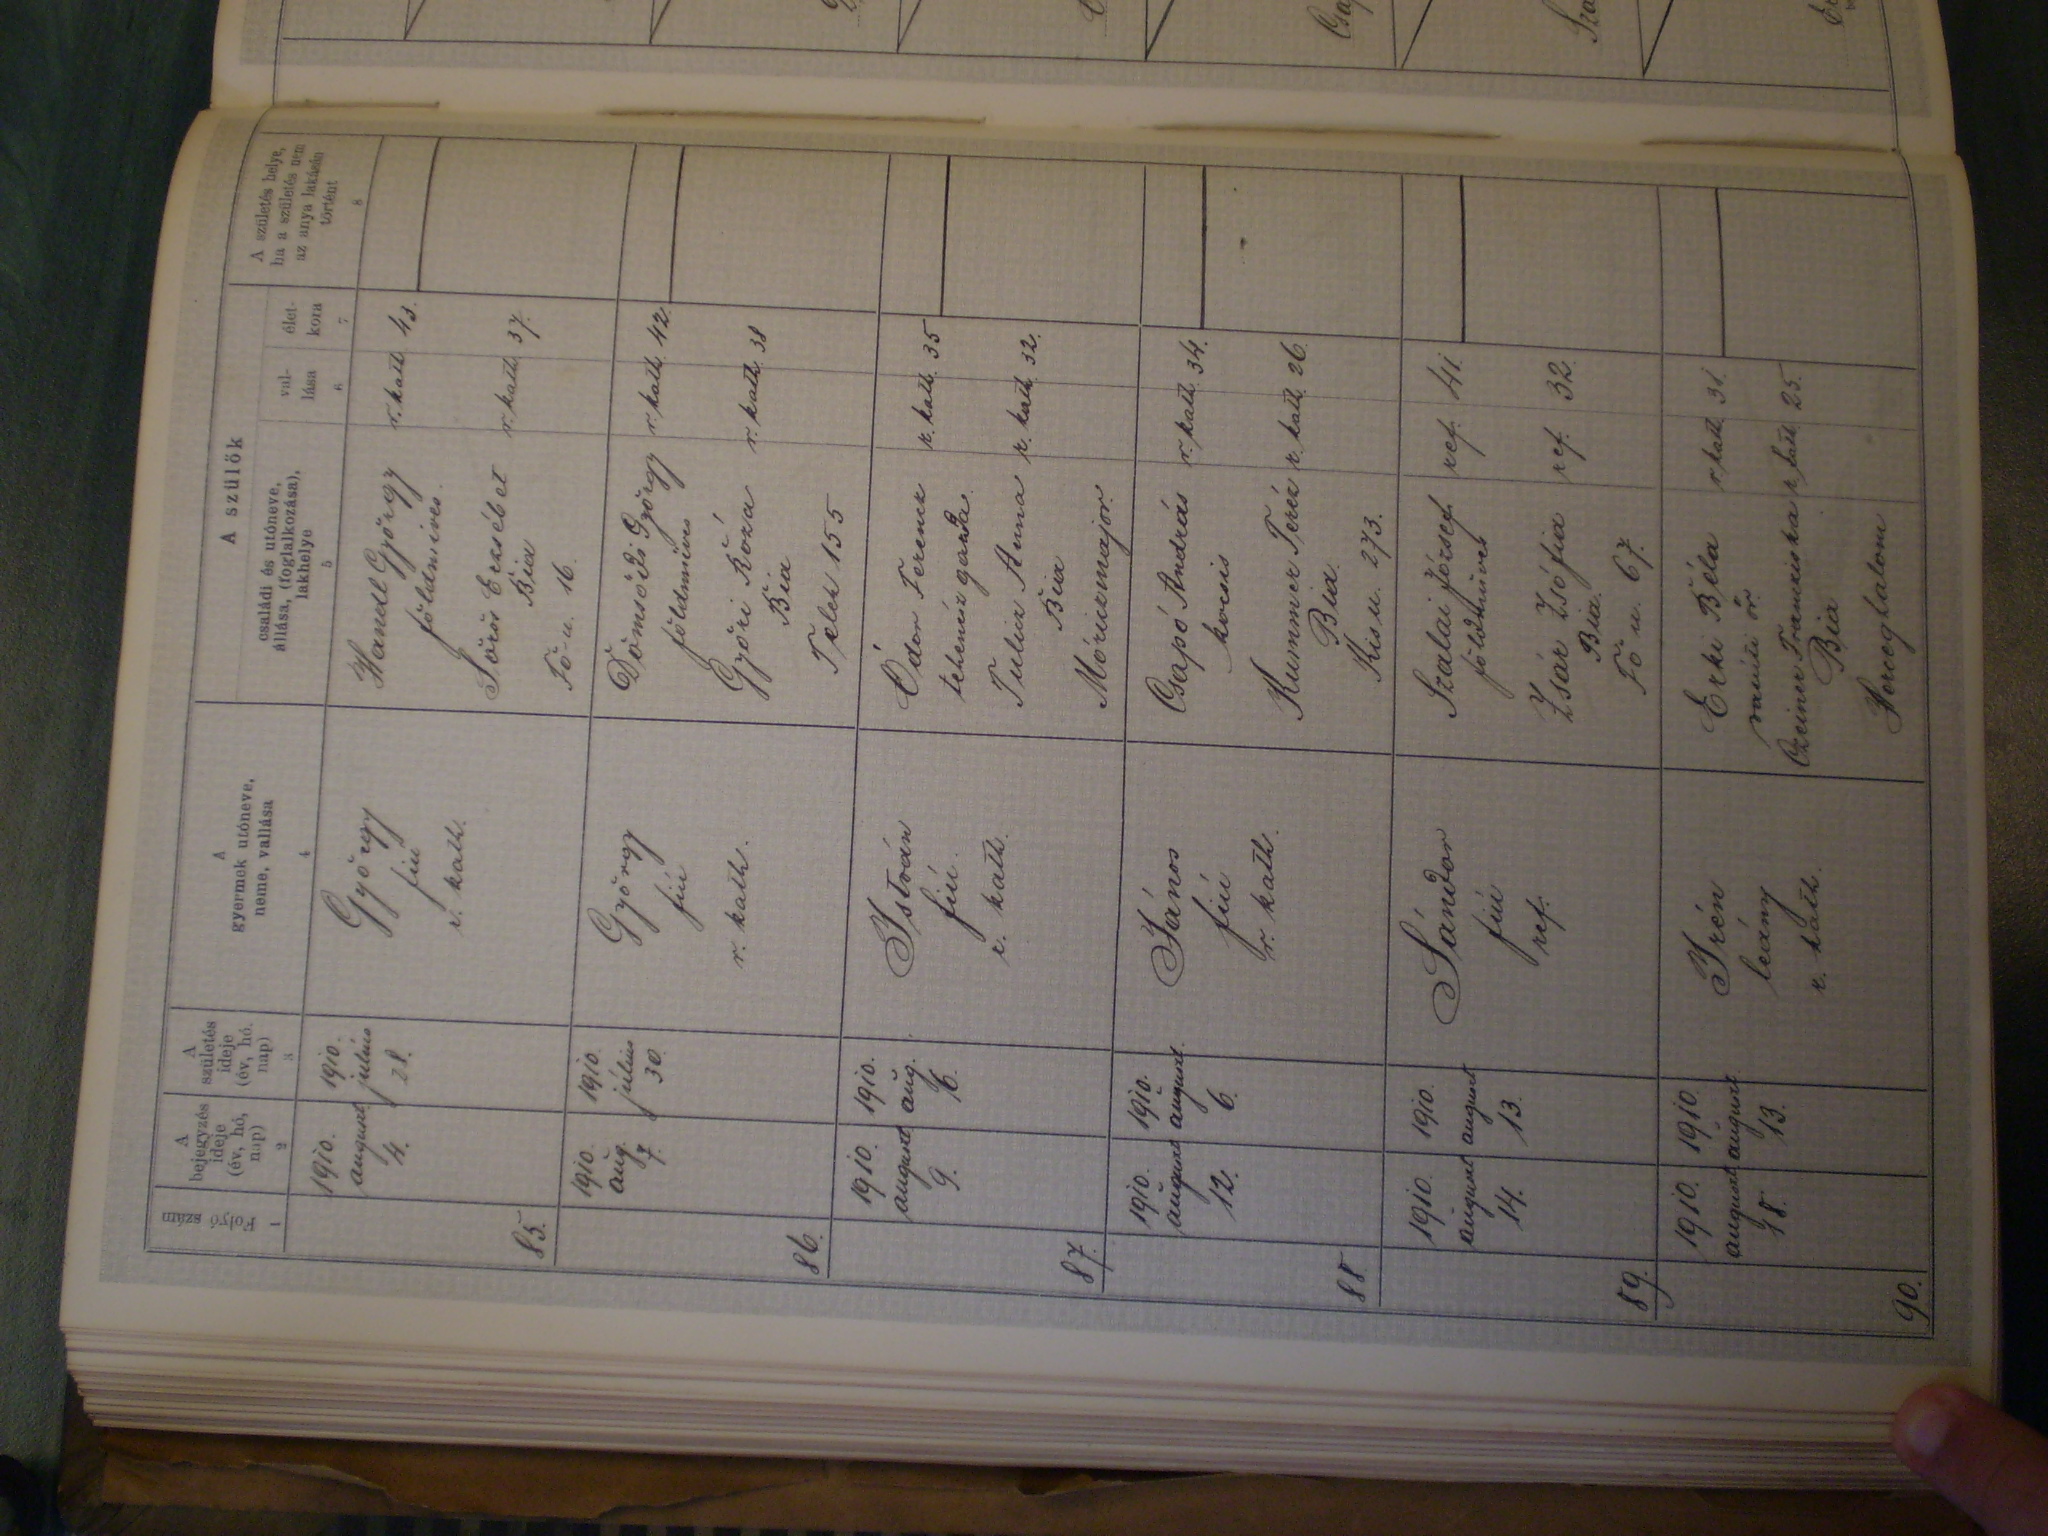 1
Folyó
szám
2
A
bejegyzés
ideje
(év, hó,
nap)
3
A
születés
ideje
(év, hó.
nap)
4
A
gyermek utóneve,
neme, vallása
A szülők
5
családi és utóneve,
állása, (foglalkozása),
lakhelye
6
val-
lása
7
élet-
kora
8
A születés helye,
ha a születés nem
az anya lakásán
történt
85.
1910.
august
4.
1910.
július
28.
György
fiú
r. kath.
Handl György
földmives.
r. kath. 43.
Sörös Erzsébet
r. kath. 37.
Bia
Fő-u. 16.
86.
1910.
aug.
7.
1910.
július
30.
György
fiú
r. kath.
Dömsödi György
földmives
r. kath. 42.
Győri Róza
r. kath. 38
Bia
Telek 155
87.
1910.
august
9.
1910.
aug.
6.
István
fiú.
r. kath.
Ódor Ferencz
r. kath. 35
tehenész gazda.
Anna
r. kath. 32.
Bia
Móriczmajor.
88.
1910.
august
12.
1910.
august.
6.
János
fiú
r. kath.
Csapó András
r. kath. 34.
kocsis
Kummer Teréz
r. kath. 26.
Bia.
Kis u. 273.
89.
1910.
august
14.
1910.
august
13.
Sándor
fiú
ref.
Szalai József
ref. 41.
földmüves
Zsár Zsófia
ref. 32.
Bia.
Fő u. 67.
90.
1910.
august
18.
1910.
august.
13.
Irén
leány
r. kath.
Erki Béla
r. kath. 31.
vasúti őr.
Franciska
r. kath. 25.
Bia
Herceghalom